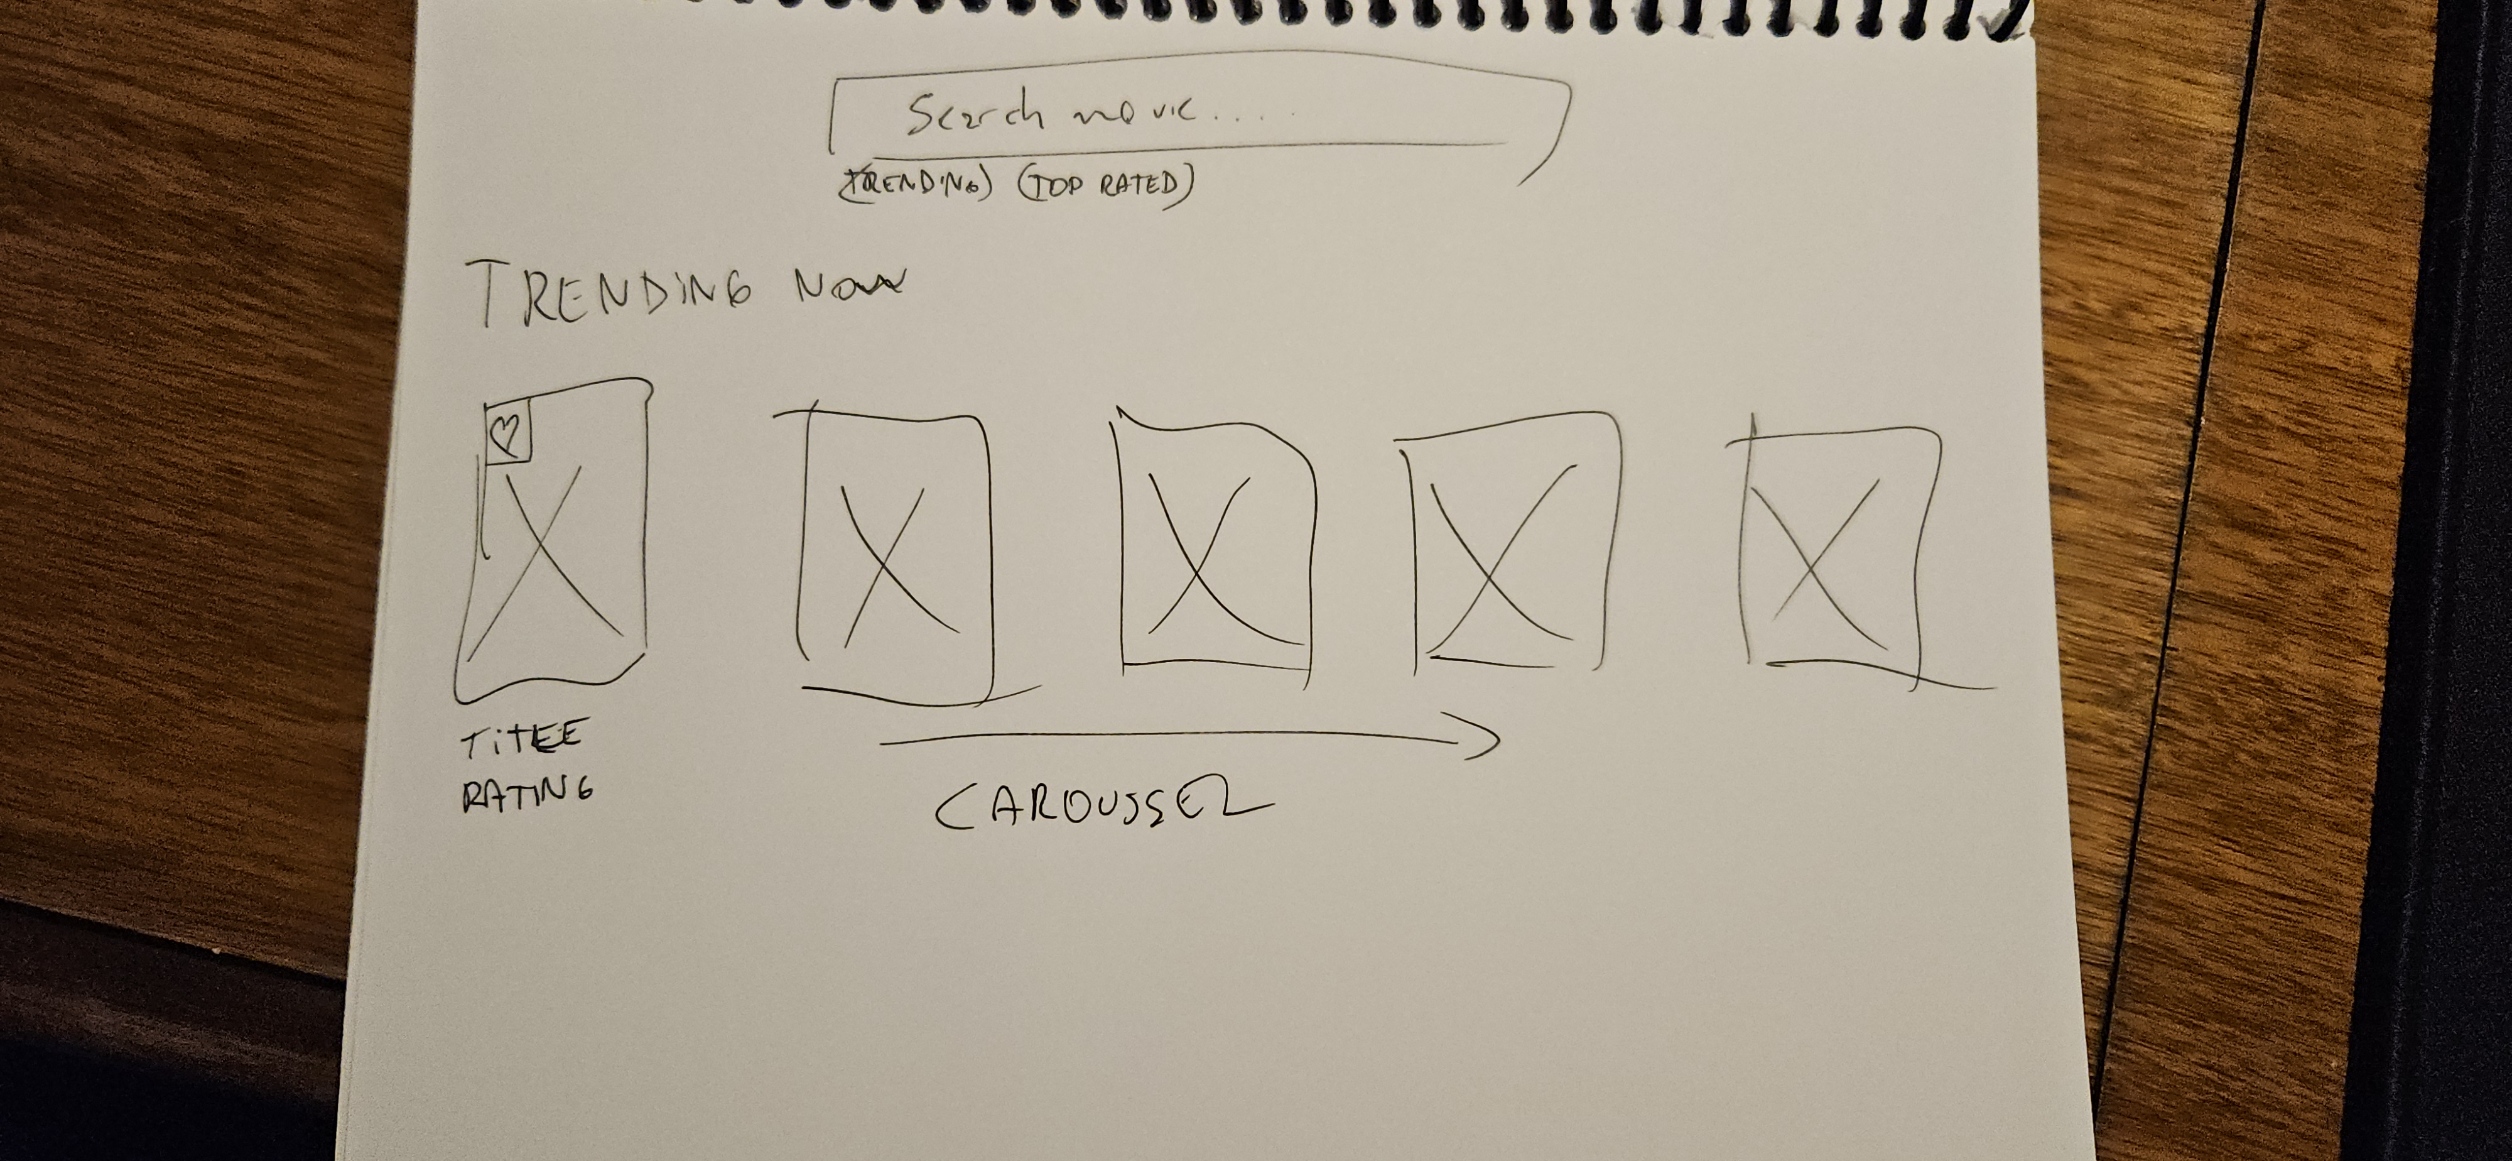 Search movie....
TRENDING) (TOP RATED)
TRENDING NOW
TITLE
RATING
CAROUSSEL